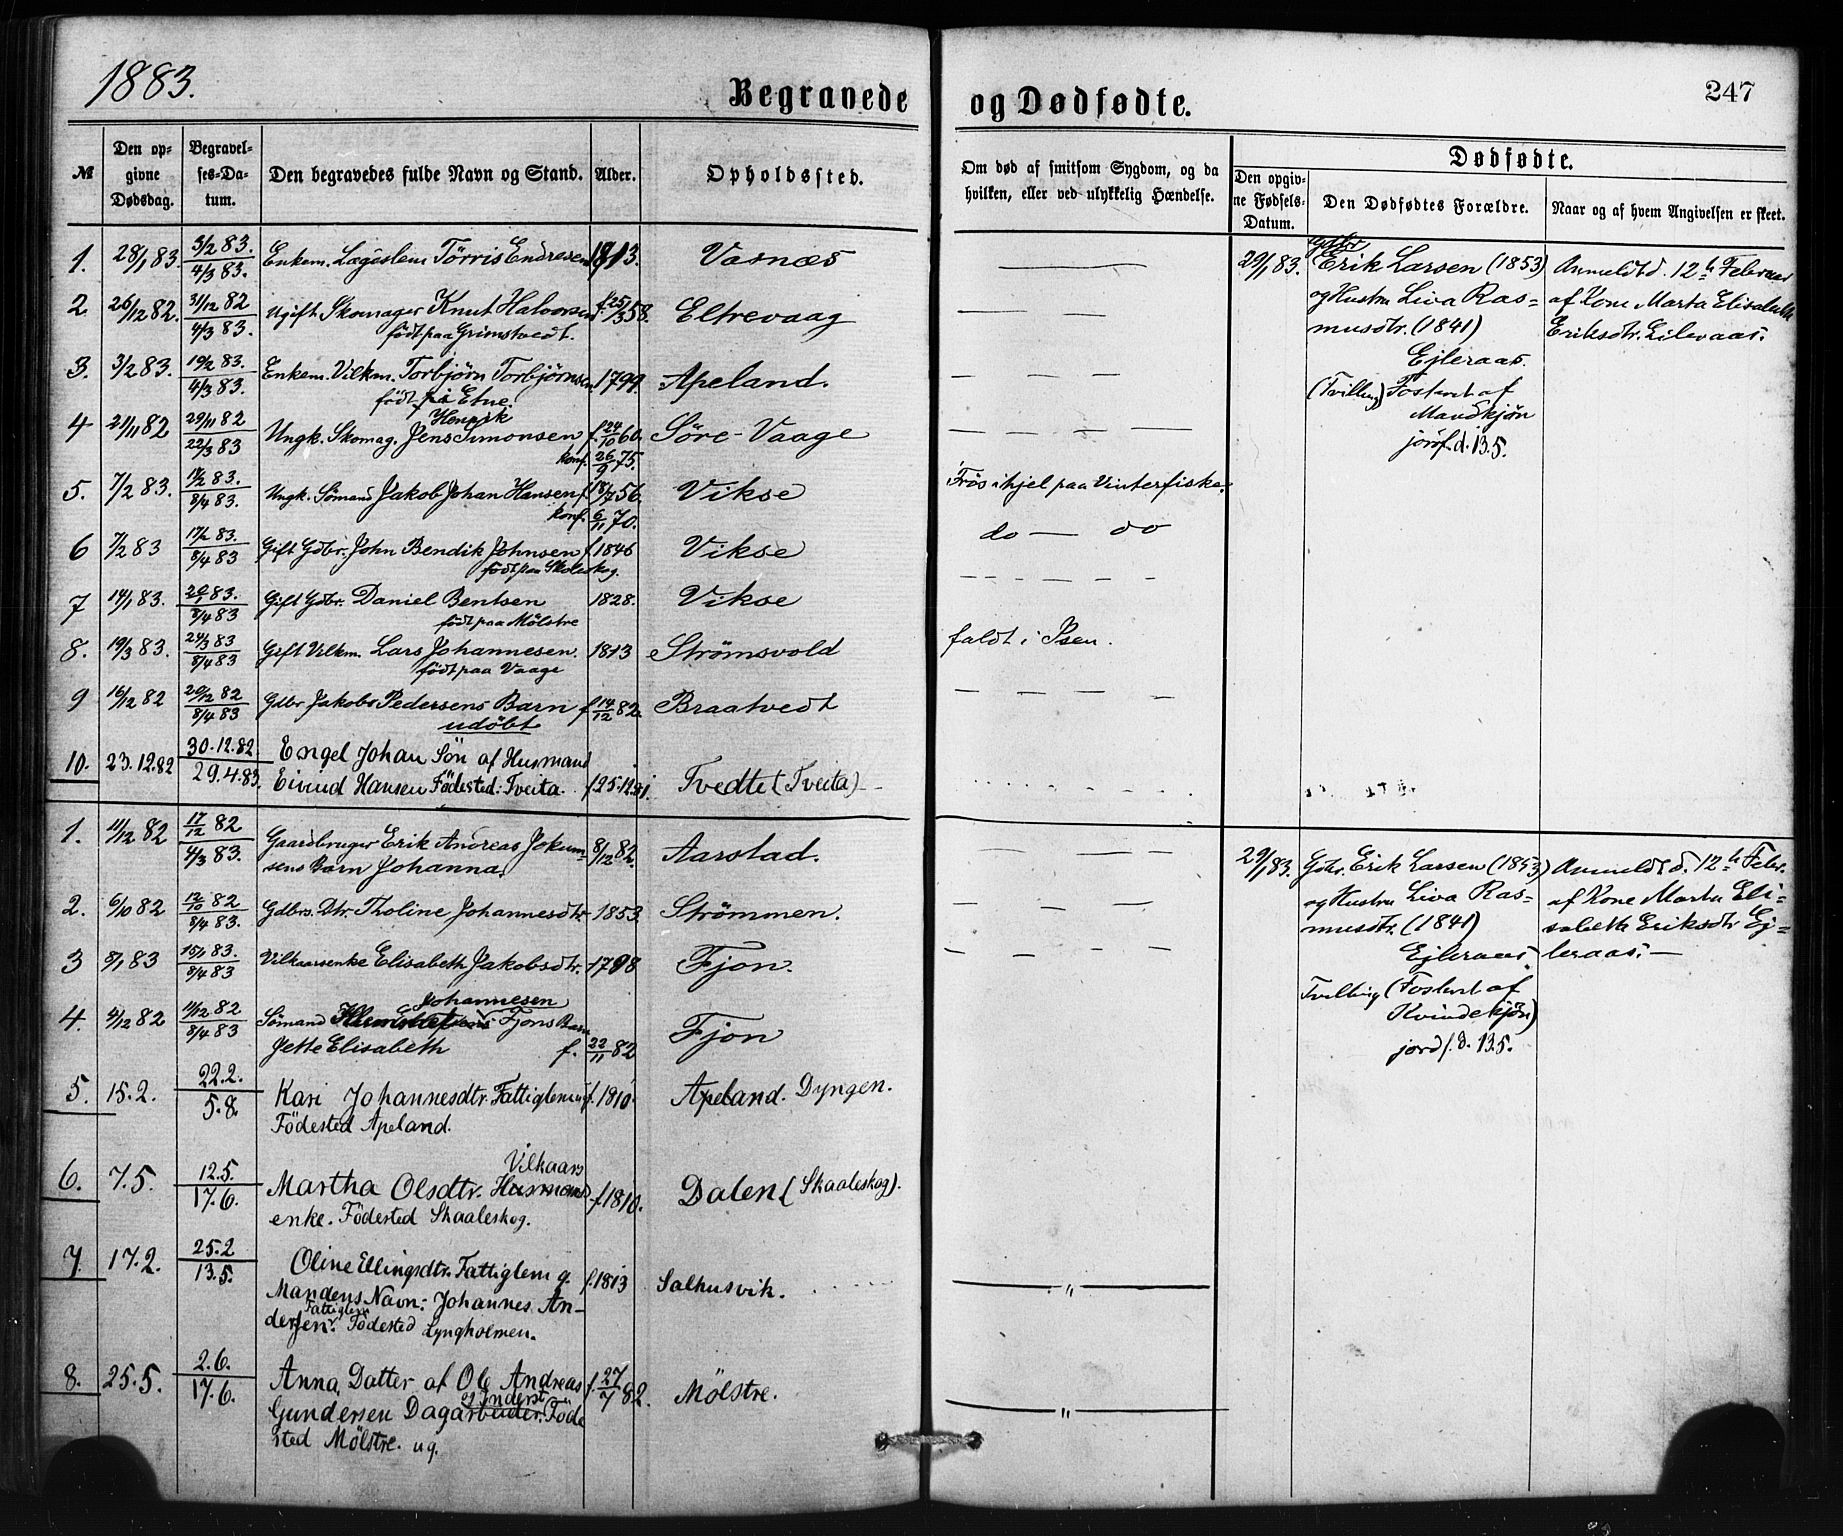 1883.
Begravede og Dødfødte.
247
№ Den opgivne Dødsdag. Begravelses-Datum. Den begravedes fulde Navn og Stand. Alder. Opholdssted.
Om død af smitsom Sygdom, og da hvilken, eller ved ulykkelig Hændelse.
Dødfødte.
Den opgivne Fødsels-Datum. Den Dødfødtes Forældre. Naar og af hvem Angivelsen er skeet.
1. 28/1 83. 3/2 83. 4/3 83. Enkem. Lægdslem Törris Endresen 1813. Vasnæs
2 26/12 82. 31/12 82 4/3 83. Ugift Skomager Knut Halvorsen f. 25/3 58. Eltrevaag
födt paa Grimstvedt.
3. 3/2 83. 10/2 83. 4/3 83. Enkem. Vilkm. Torbjörn Torbjörnsen 1799. Apeland.
födt på Etne.
4 21/11 82 29/11 82 22/3 83 Ungk. Skomag. Jens Henrik Simonsen f. 24/10 60. Söre-Vaage
konf. 26/9 75.
5. 7/2 83. 17/2 83. 8/4 83. Ungk. Sömand Jakob Johan Hansen f. 18/7 56. Vikse
Frös ihjel paa Vinterfiske.
konf. 6/11 70.
6 7/2 83 17/2 83. 8/4 83 Gift Gdbr. John Bendik Johnsen f. 1846 Vikse
do — do
födt paa Skoleskog.
7 14/1 83. 20/1 83. 8/4 83 Gift Gdbr. Daniel Bentsen 1828. Vikse
födt paa Mölstre
8. 19/3 83. 24/3 83 8/4 83 Gift Vilkm. Lars Johannesen. 1813 Strömsvold
faldt i Isen.
födt paa Vaage
9 16/12 82 20/12 82 8/4 83 Gdbr Jakobs Pedersens Barn f. 14/12 82. Braatvedt
udöbt
10. 23.12.82 30.12.82. 29.4.83. Engel Johan Sön af Husmand
Eivind Hansen Födested: Tveita. f. 25.12.81. Tvedte (Tveita)
29/1 83. Gdbr Erik Larsen (1853)
og Hustru Liva Ras-
musdtr. (1841)
Ejleraas.
(Tvilling) Fosteret af
Mandkjön
jordf. d. 13.5.
Anmeldt d. 12te Februar
af Kone Marta Elisabeth
Eriksdtr. Eileraas.
1. 11/12 82 17/12 82 4/3 83. Gaardbruger Erik Andreas Jokum-
sens Barn Johanna. 8/12 82. Aarstad.
2. 6/10 82 12/10 82 8/4 83. Gdbrs. Dtr. Tholine Johannesdtr. 1853. Strömmen.
3 8/1 83 15/1 83. 8/4 83 Vilkaarsenke Elisabeth Jakobsdtr. 1798 Fjon.
4. 4/12 82 11/12 82 8/4 83 Sömand Johannesen Fjons Barn
Jette Elisabeth f. 22/11 82 Fjon
5. 15.2. 22.2. 5.8. Kari Johannesdtr. Fattiglem ug f. 1810. Apeland. Dyngen.
Födested Apeland.
6. 7.5. 12.5. 17.6. Martha Olsdtr. Vilkaars Husmands
enke. Födested Skaaleskog. f. 1810. Dalen (Skaaleskog).
7. 17.2. 25.2 13.5. Oline Ellingsdtr. Fattiglem g.
Mandens Navn: Johannes An-
dersen. Fattiglem Födested Lyngholmen. f. 1813 Salhusvik. — „ —
8. 25.5. 2.6. 17.6. Anna, Datter af Ole Andreas
Gundersen Dagarbeider og Inderst. Föde
sted Mölstre. ug. f. 27/7 82. Mölstre. — „ —
29/1 83. Gdbr. Erik Larsen (1853)
og Hustru Liva Ras-
musdtr. (1841)
Ejleraas.
Tvilling (Fosteret af
Kvindekjön)
jordf. d. 13.5.
Anmeldt d. 12te Febr.
af Kone Marta Eli-
sabeth Eriksdtr Ej-
leraas. —